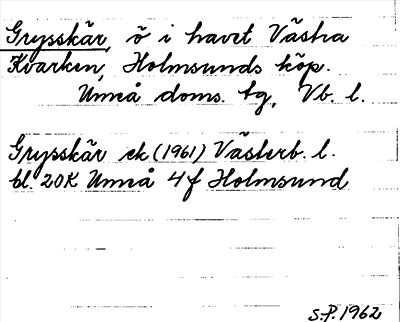 Grysskär, ö i havet Västra
Kvarken, Holmsunds köp.
Umeå doms. tg, Vb. l.
Grysskär ek (1961) Västerb. l.
bl. 20K Umeå 4f Holmsund
S.P. 1962